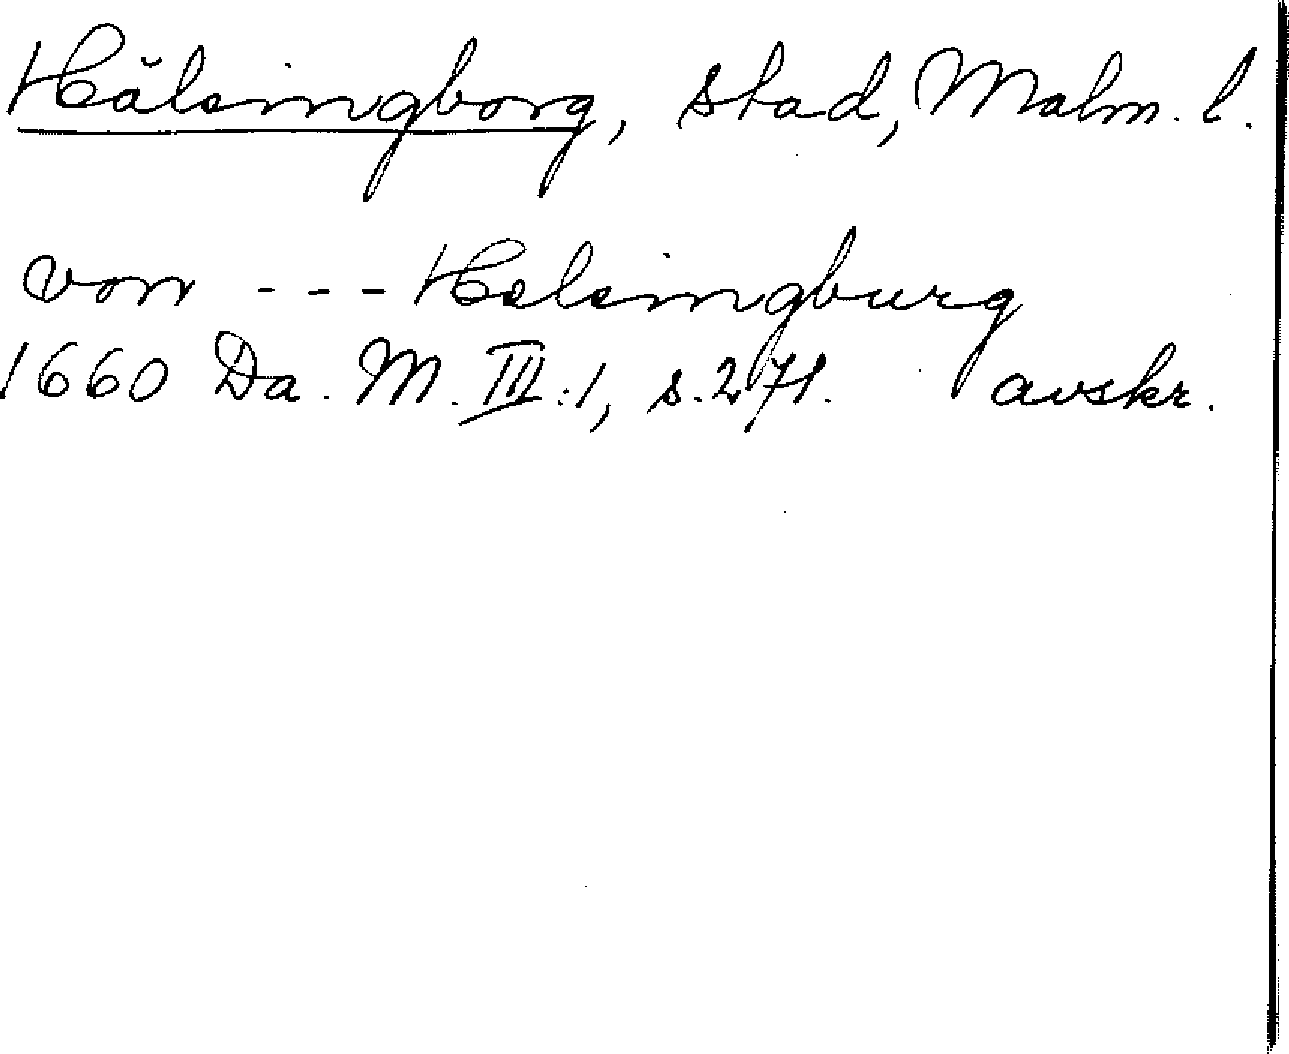 Hälsingborg, stad, Malm. l.
von - - - Helsingburg
1660 Da. M. III:1, s. 271. avskr.